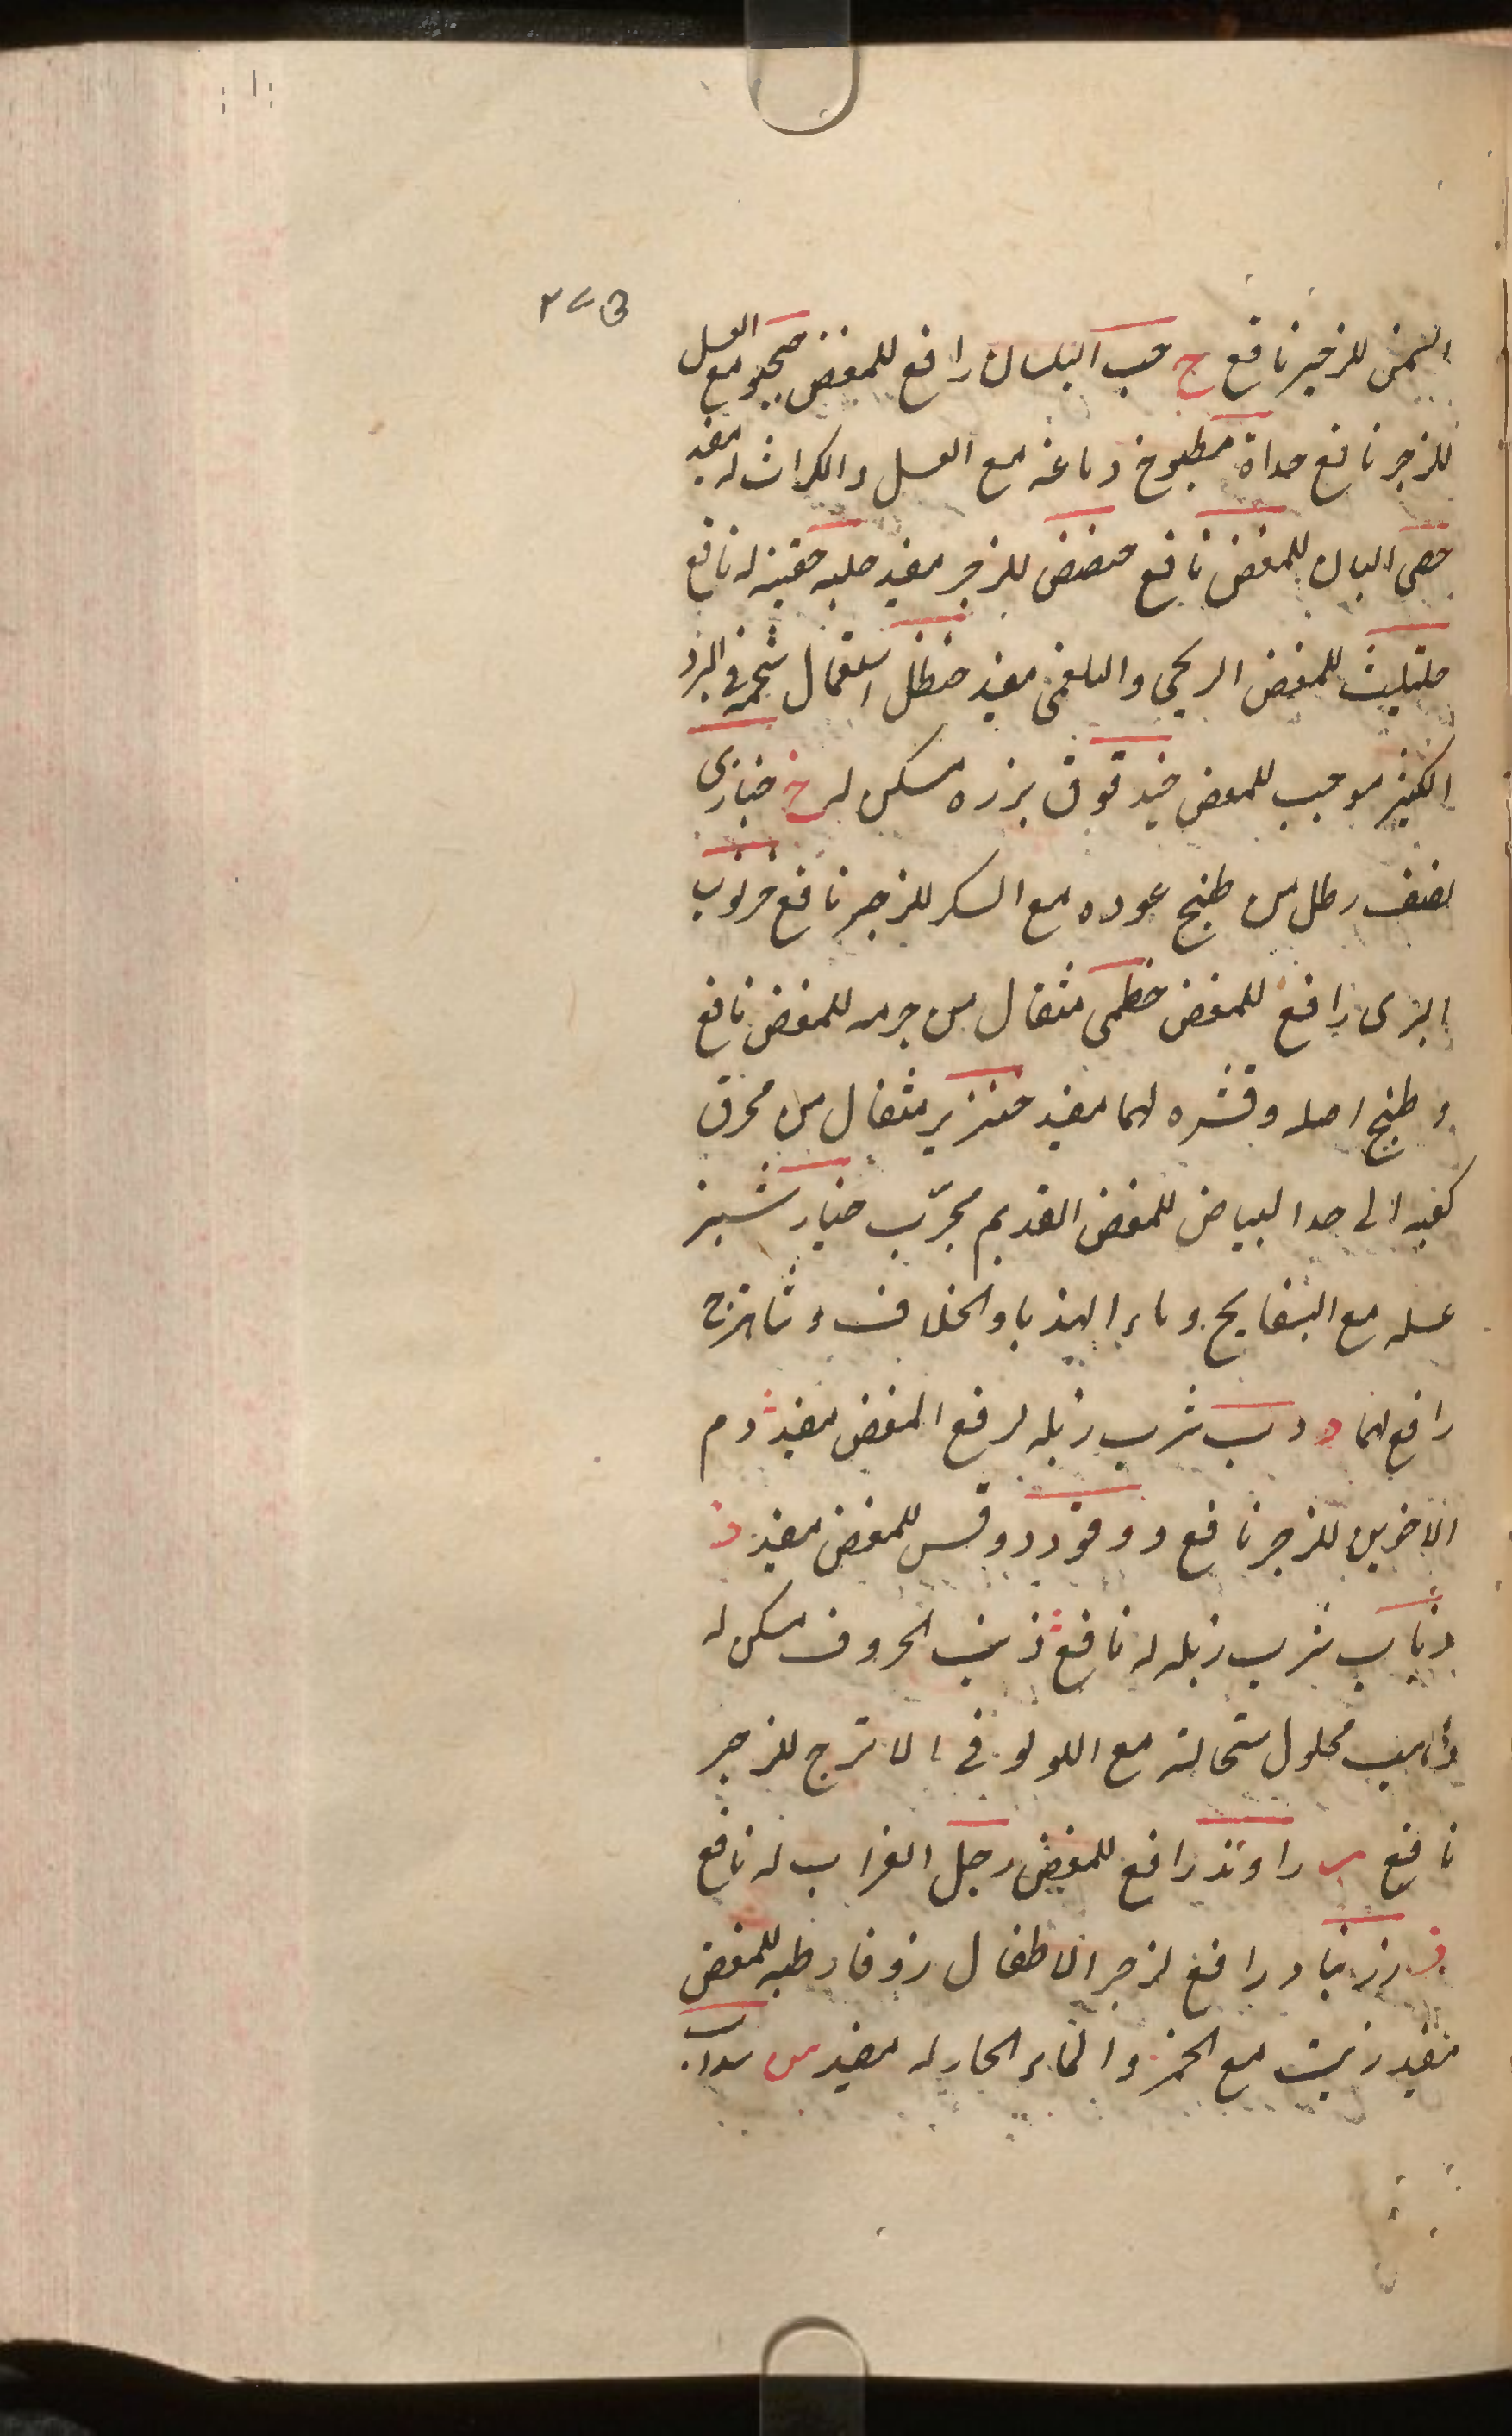 ٢٧٥
السمن للزحير نافع ح حب البلسان رافع للمغص حجر مع العسل
للزحير نافع حداة مطبوخ دماغه مع العسل والكراث له مفيد
حصى البان للمغص نافع حضض للزحير مفيد حلبه حقنته له نافع
حلتيث للمغص الريحي والبلغمي مفيد حنظل استعمال شحمه في البرد
الكثير موجب للمغص حندقوق بزره مسكن له خ خبازى
نصف رطل من طبيخ عوده مع السكر للزحير نافع خرنوب
البري رافع للمغص خطمي مثقال من جرمه للمغص نافع
وطبيخ اصله وقشره لهما مفيد خنزير مثقال من محرق
كعبه الى حد البياض للمغص القديم مجرّب خيار شنبر
عسله مع البسفايج وماء الهندبا والخلاف وشاهترج
رافع لهما د دب شرب زبله لرفع المغص مفيد دم
الاخوين للزحير نافع دوقو دوقس للمغص مفيد ذ
ذياب شرب زبله له نافع ذنب الخروف مسكن له
ذهب محلول سحالته مع اللولو في الاترج للزحير
نافع ر راوند رافع للمغص رجل الغراب له نافع
ز زرنباد رافع لزحير الاطفال زوفا رطبه للمغص
مفيد زيت مع الخمر والماء الحار له مفيد س سداب